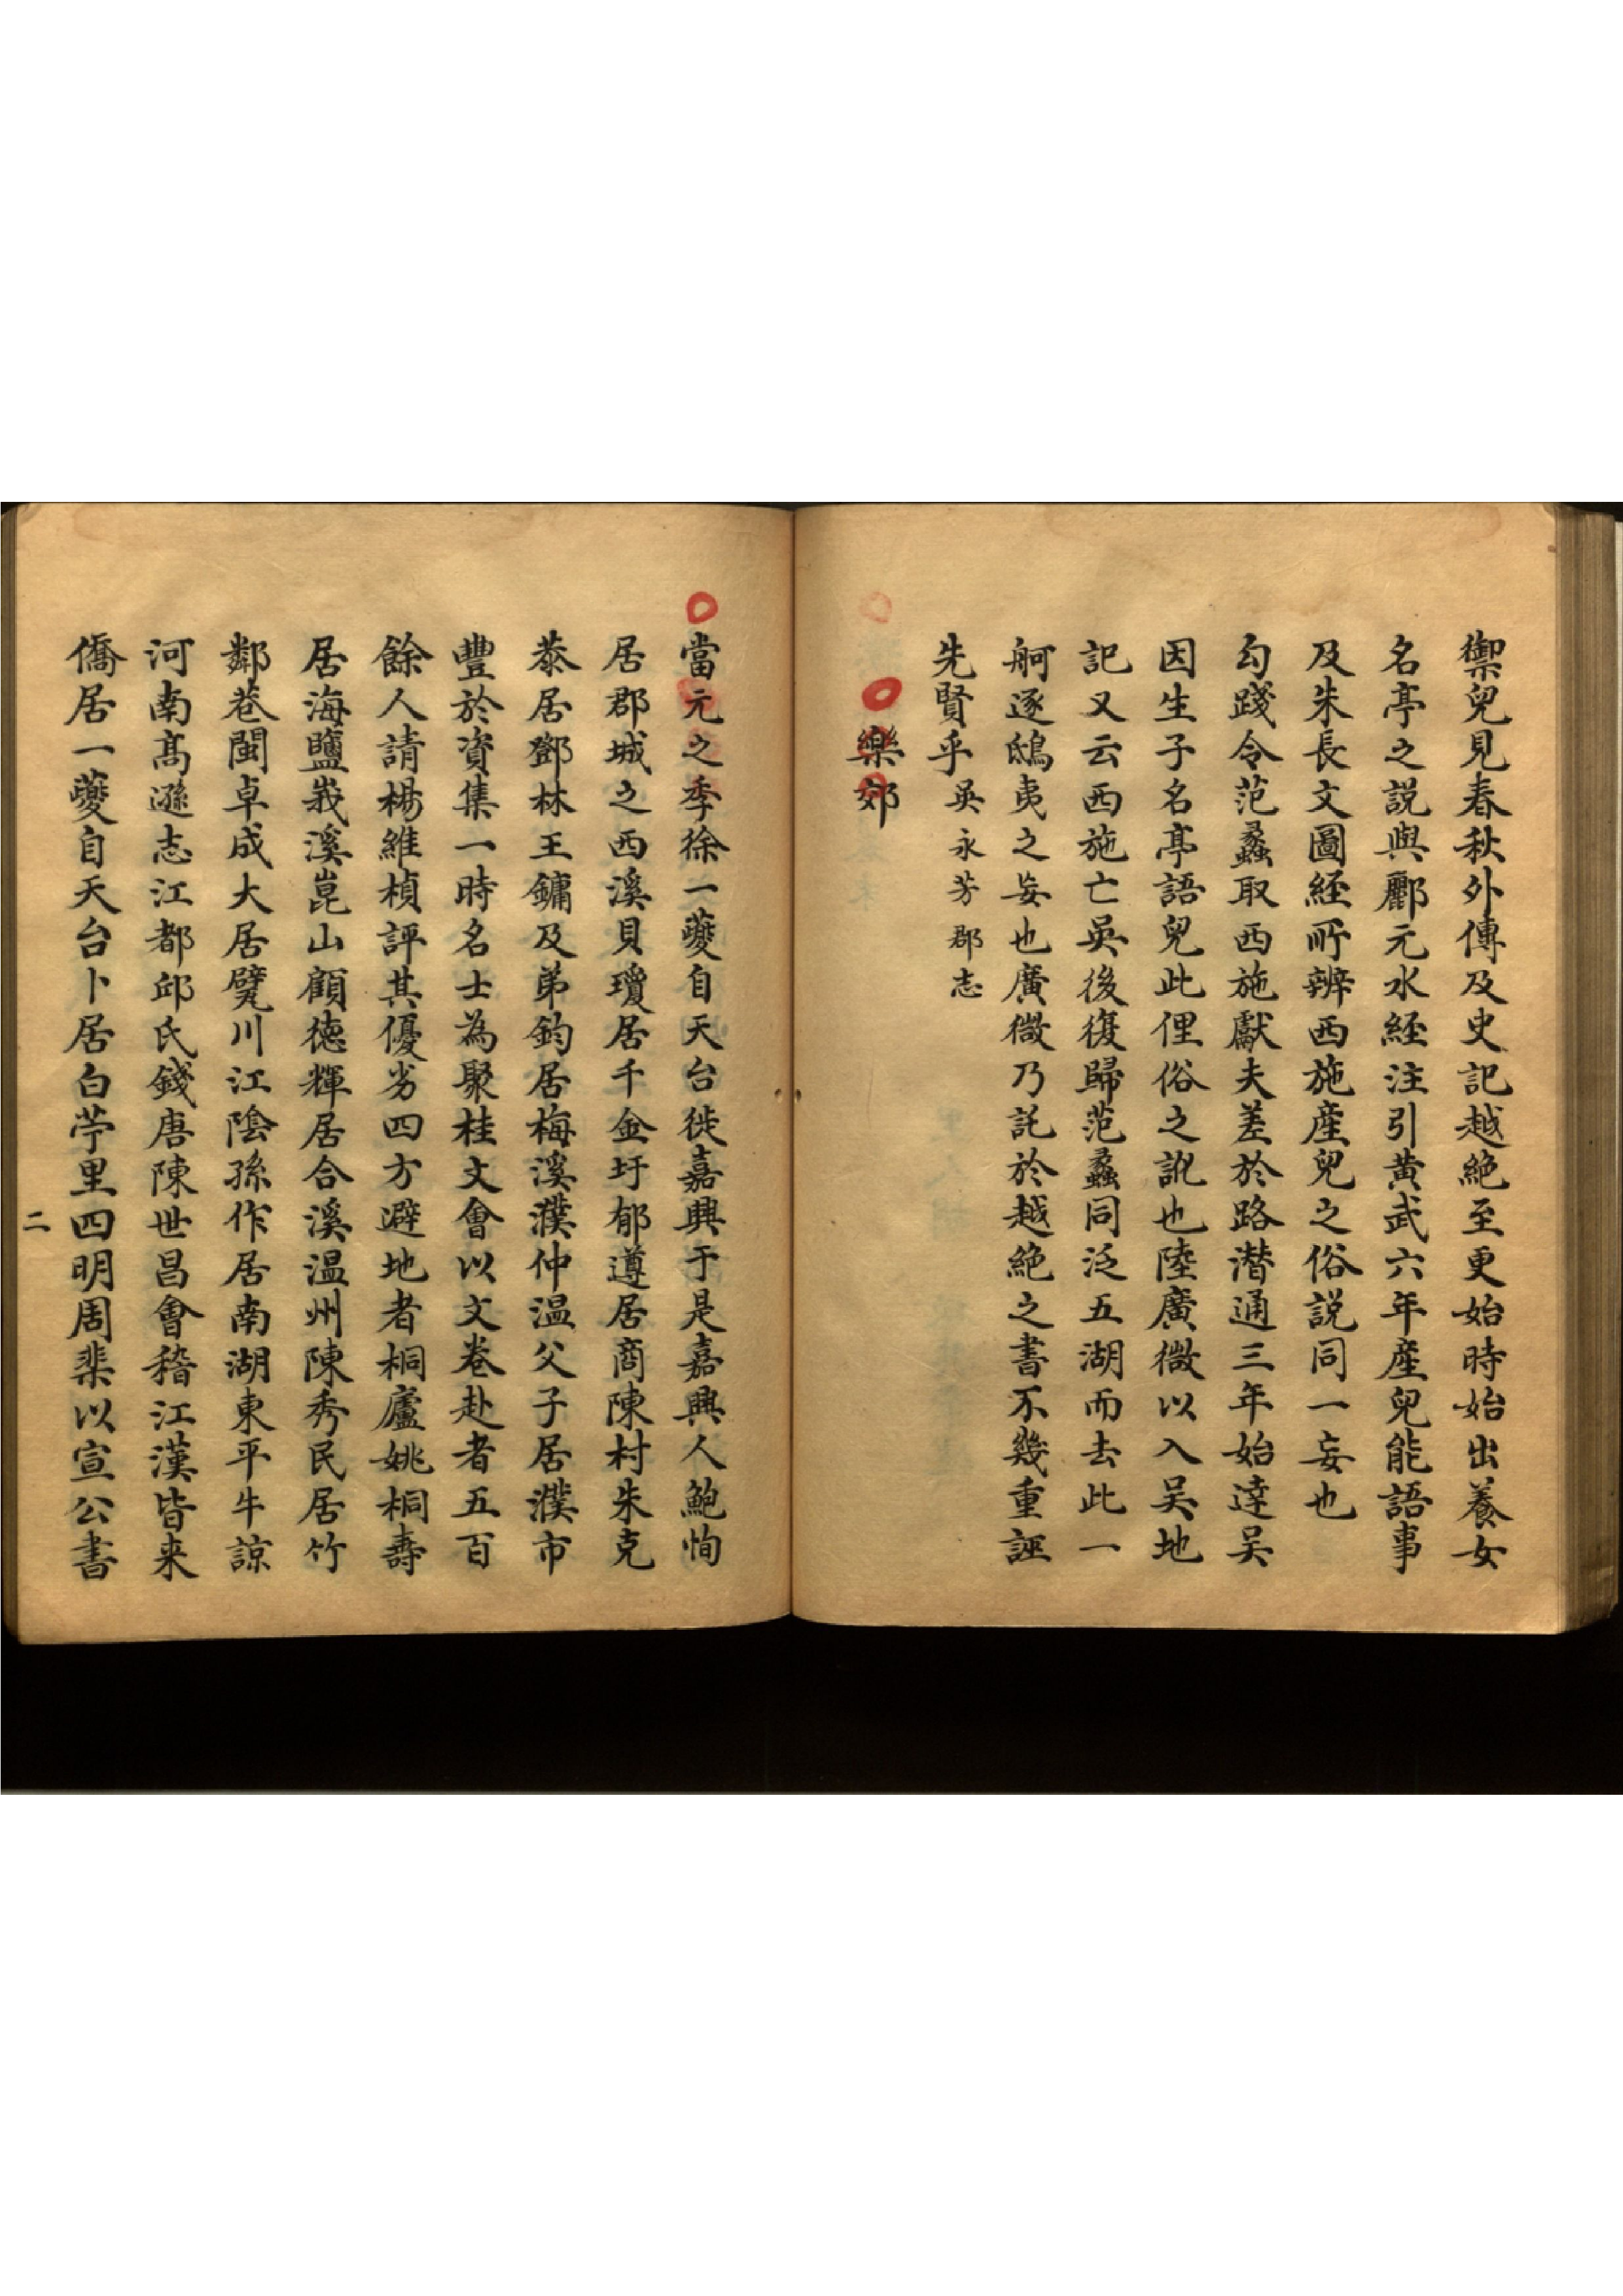 禦兒見春秋外傳及史記越絕至更始時始出養女
名亭之說與酈元水經注引黃武六年産兒能語事
及朱長文圖經所辨西施産兒之俗說同一妄也
勾踐令范蠡取西施獻夫差於路潛通三年始達吳
因生子名亭語兒此俚俗之訛也陸廣微以入吳地
記又云西施亡吳後復歸范蠡同泛五湖而去此一
舸逐鴟夷之妄也廣微乃託於越絕之書不幾重誣
先賢乎吳永芳郡志
樂郊
當元之季徐一夔自天台徙嘉興于是嘉興人鮑恂
居郡城之西溪貝瓊居千金圩郁遵居商陳村朱克
恭居鄧林王鏞及弟鈞居梅溪濮仲温父子居濮市
豐於資集一時名士為聚桂文會以文卷赴者五百
餘人請楊維楨評其優劣四方避地者桐廬姚桐壽
居海鹽峩溪崑山顧德輝居合溪温州陳秀民居竹
鄰巷閩卓成大居甓川江陰孫作居南湖東平牛諒
河南髙遜志江都邱氏錢唐陳世昌會稽江漢皆来
僑居一夔自天台卜居白苧里四明周棐以宣公書
二